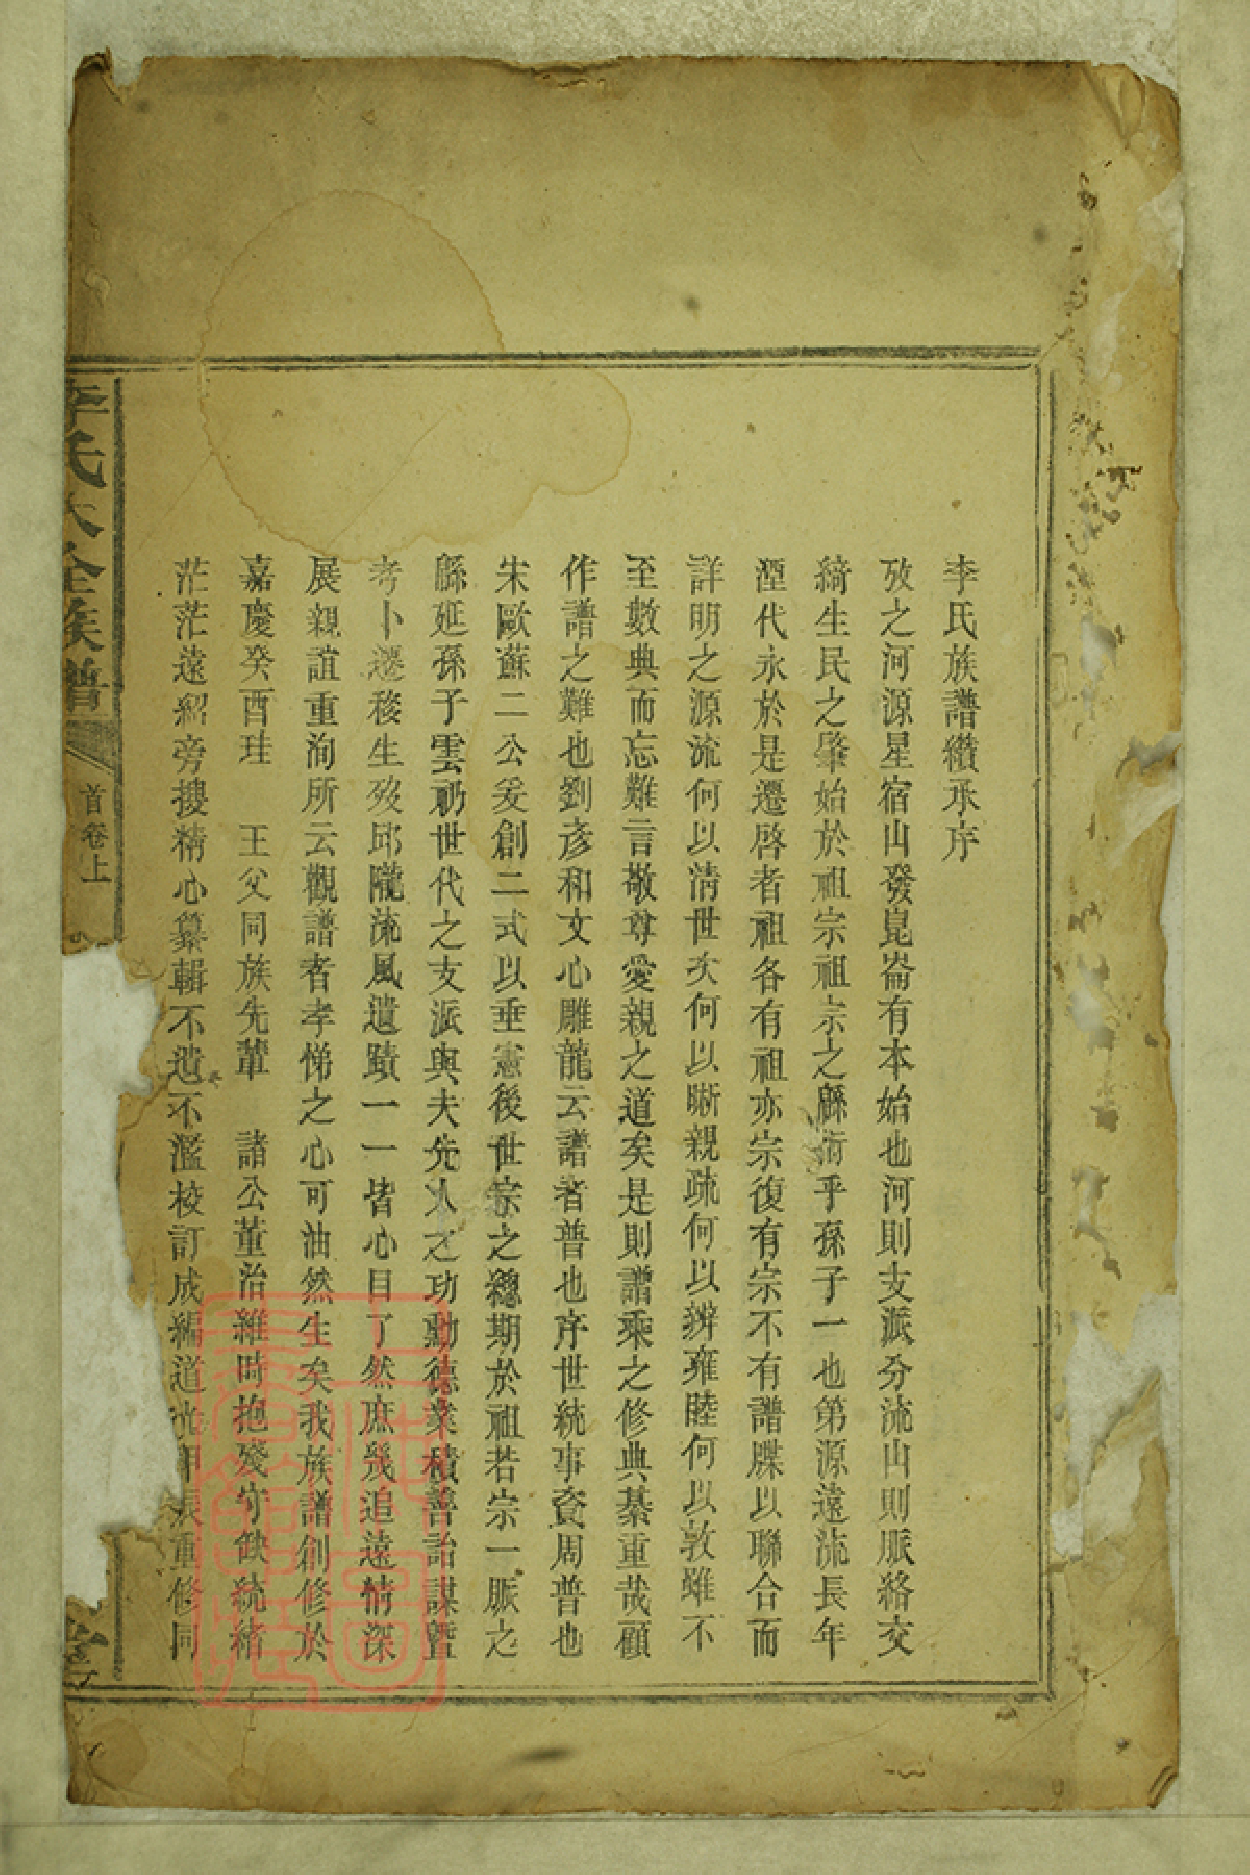 李氏族譜纘承序
攷之河源星宿山發崑崙有本始也河則支派分流山則脈絡交
綺生民之肇始於祖宗祖宗之緜衍乎孫子一也第源遠流長年
湮代永於是遷啓者祖各有祖亦宗復有宗不有譜牒以聯合而
詳明之源流何以清世次何以晰親疏何以辨雍睦何以敦雖不
至數典而忘難言敬尊愛親之道矣是則譜乘之修典綦重哉顧
作譜之難也劉彥和文心雕龍云譜者普也序世統事資周普也
宋歐蘇二公爰創二式以垂憲後世宗之緫期於祖若宗一脈之
緜延孫子雲礽世代之支派與夫先人之功勳德業積善詒謀暨
考卜遷移生歿邱隴流風遺蹟一一皆心目了然庶幾追遠情深
展親誼重洵所云觀譜者孝悌之心可油然生矣我族譜創修於
嘉慶癸酉珪 王父同族先輩 諸公董治維時抱殘守缺統緒
茫茫遠紹旁搜精心纂輯不遺不濫校訂成編道光甲辰重修同
李氏大全族譜 首卷上 堂
上海圖書館藏